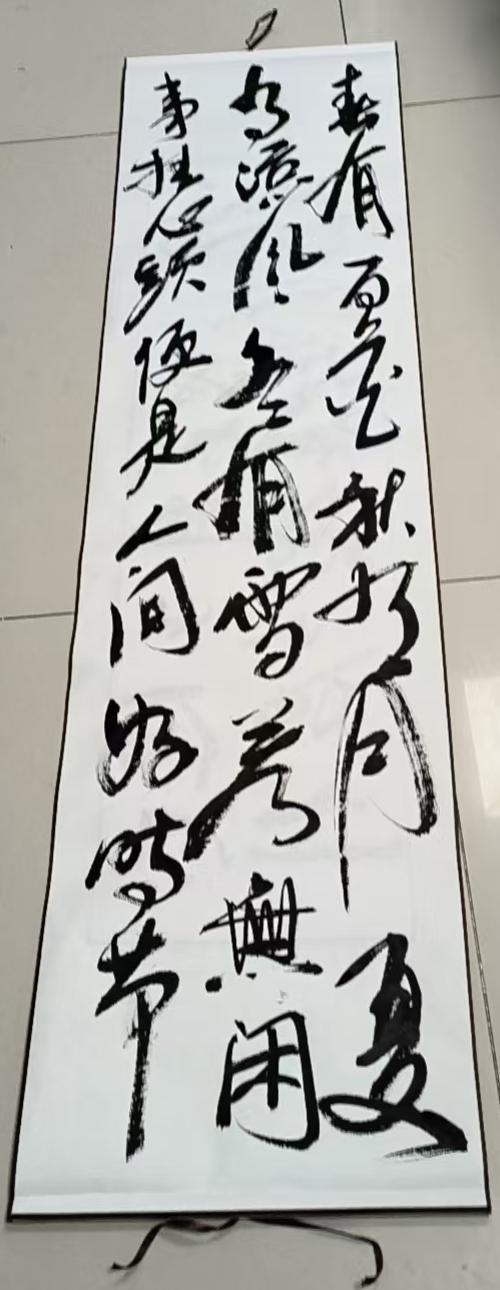 春有百花秋有月夏
有凉风冬有雪若無闲
事挂心頭便是人间好時节